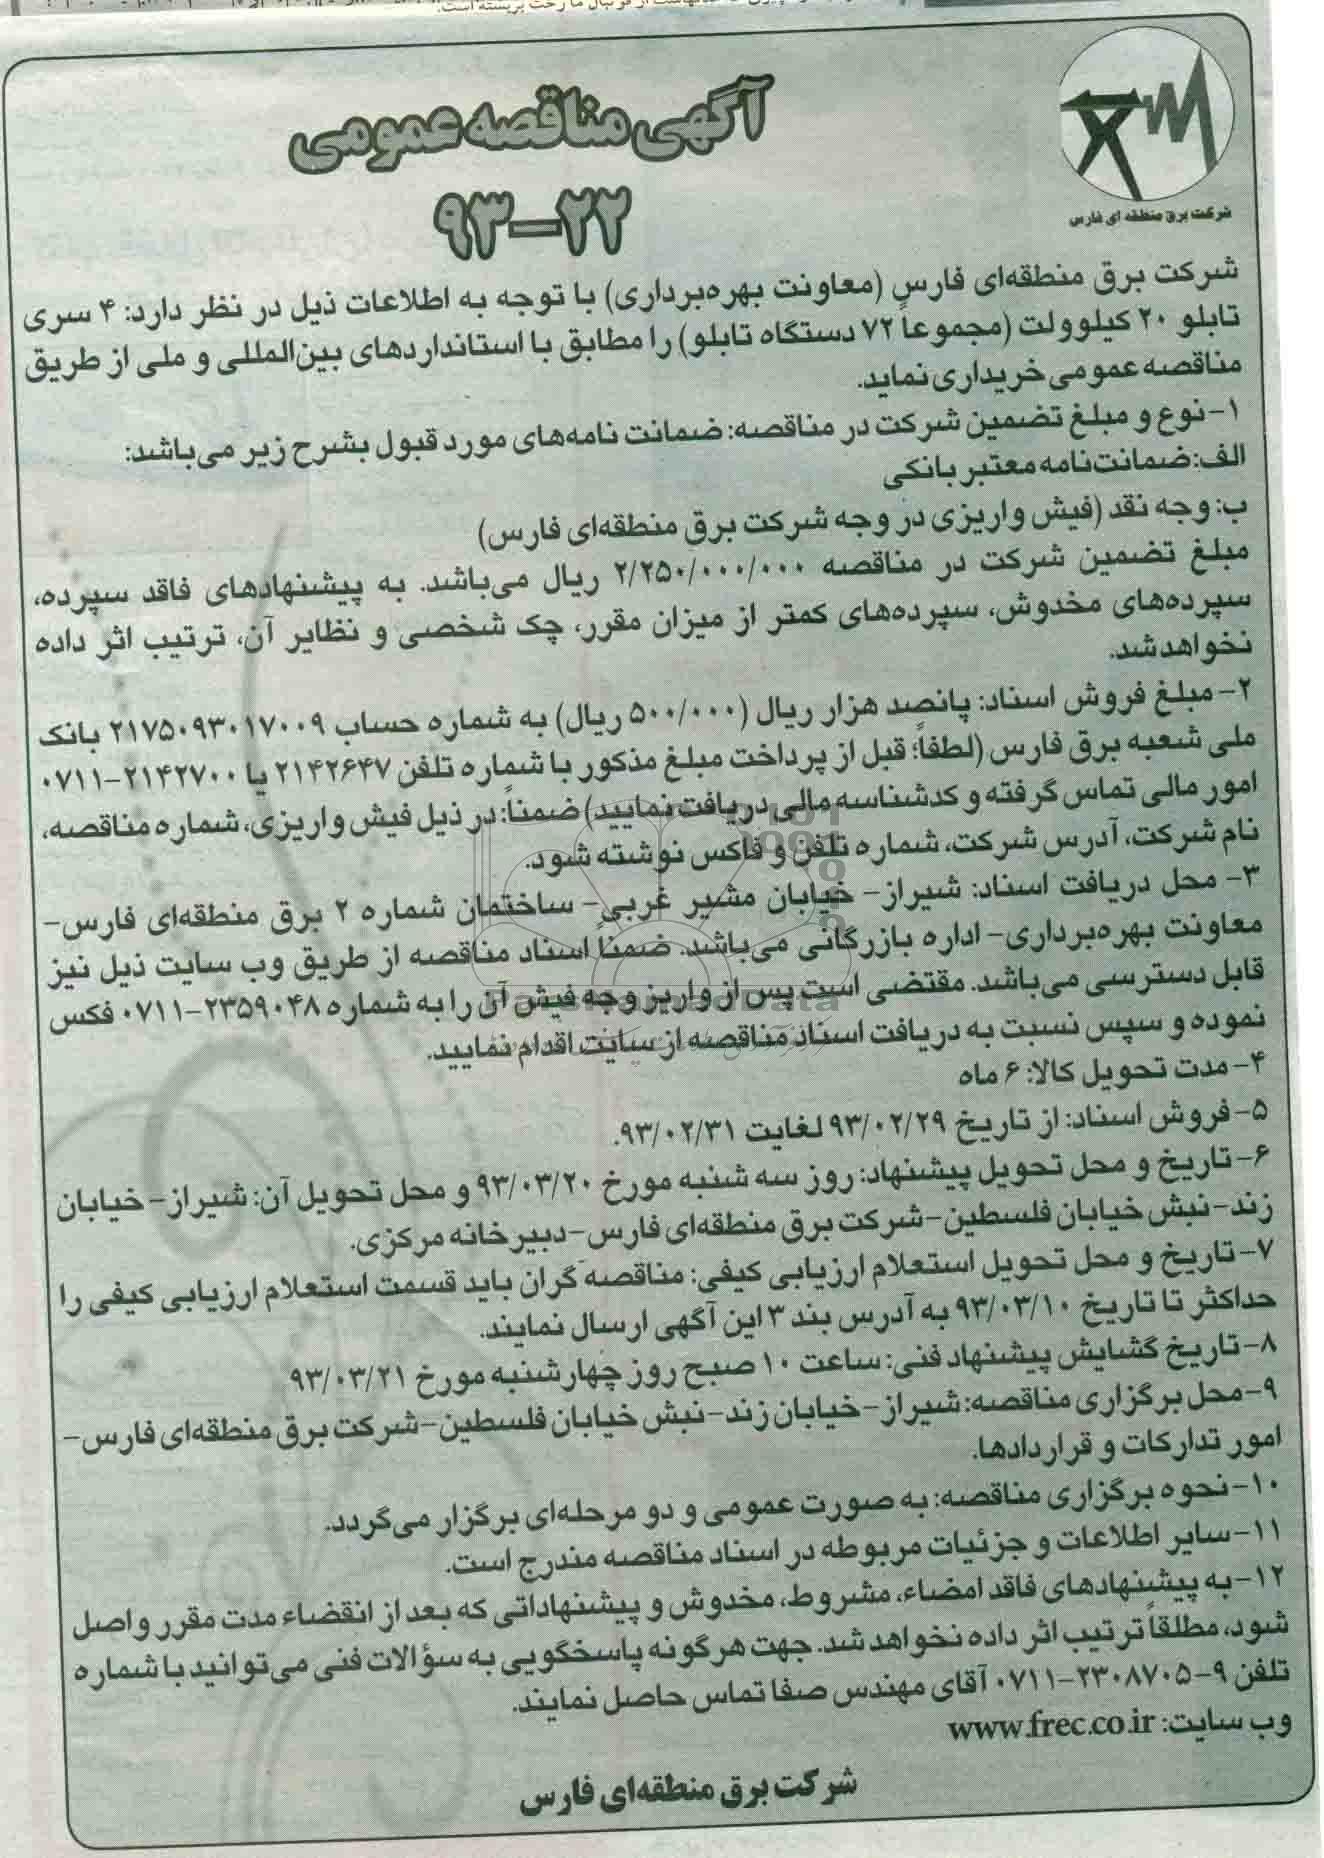 شرکت برق منطقه ای فارس
آگهی مناقصه عمومی
۹۳-۲۲
شرکت برق منطقه‌ای فارس (معاونت بهره‌برداری) با توجه به اطلاعات ذیل در نظر دارد: ۴ سری
تابلو ۲۰ کیلوولت (مجموعاً ۷۲ دستگاه تابلو) را مطابق با استانداردهای بین‌المللی و ملی از طریق
مناقصه عمومی خریداری نماید.
۱- نوع و مبلغ تضمین شرکت در مناقصه: ضمانت نامه‌های مورد قبول بشرح زیر می‌باشد:
الف: ضمانت‌نامه معتبر بانکی
ب: وجه نقد (فیش واریزی در وجه شرکت برق منطقه‌ای فارس)
مبلغ تضمین شرکت در مناقصه ۲/۲۵۰/۰۰۰/۰۰۰ ریال می‌باشد. به پیشنهادهای فاقد سپرده،
سپرده‌های مخدوش، سپرده‌های کمتر از میزان مقرر، چک شخصی و نظایر آن، ترتیب اثر داده
نخواهد شد.
۲- مبلغ فروش اسناد: پانصد هزار ریال (۵۰۰/۰۰۰ ریال) به شماره حساب ۲۱۷۵۰۹۳۰۱۷۰۰۹ بانک
ملی شعبه برق فارس (لطفاً؛ قبل از پرداخت مبلغ مذکور با شماره تلفن ۲۱۴۲۶۴۷ یا ۲۱۴۲۷۰۰-۰۷۱۱
امور مالی تماس گرفته و کدشناسه مالی دریافت نمایید) ضمناً: در ذیل فیش واریزی، شماره مناقصه،
نام شرکت، آدرس شرکت، شماره تلفن و فاکس نوشته شود.
۳- محل دریافت اسناد: شیراز- خیابان مشیر غربی- ساختمان شماره ۲ برق منطقه‌ای فارس-
معاونت بهره‌برداری- اداره بازرگانی می‌باشد. ضمناً اسناد مناقصه از طریق وب سایت ذیل نیز
قابل دسترسی می‌باشد. مقتضی است پس از واریز وجه فیش آن را به شماره ۲۳۵۹۰۴۸-۰۷۱۱ فکس
نموده و سپس نسبت به دریافت اسناد مناقصه از سایت اقدام نمایید.
۴- مدت تحویل کالا: ۶ ماه
۵- فروش اسناد: از تاریخ ۹۳/۰۲/۲۹ لغایت ۹۳/۰۲/۳۱.
۶- تاریخ و محل تحویل پیشنهاد: روز سه شنبه مورخ ۹۳/۰۳/۲۰ و محل تحویل آن: شیراز- خیابان
زند- نبش خیابان فلسطین- شرکت برق منطقه‌ای فارس- دبیرخانه مرکزی.
۷- تاریخ و محل تحویل استعلام ارزیابی کیفی: مناقصه گران باید قسمت استعلام ارزیابی کیفی را
حداکثر تا تاریخ ۹۳/۰۳/۱۰ به آدرس بند ۳ این آگهی ارسال نمایند.
۸- تاریخ گشایش پیشنهاد فنی: ساعت ۱۰ صبح روز چهارشنبه مورخ ۹۳/۰۳/۲۱
۹- محل برگزاری مناقصه: شیراز- خیابان زند- نبش خیابان فلسطین- شرکت برق منطقه‌ای فارس-
امور تدارکات و قراردادها.
۱۰- نحوه برگزاری مناقصه: به صورت عمومی و دو مرحله‌ای برگزار می‌گردد.
۱۱- سایر اطلاعات و جزئیات مربوطه در اسناد مناقصه مندرج است.
۱۲- به پیشنهادهای فاقد امضاء، مشروط، مخدوش و پیشنهاداتی که بعد از انقضاء مدت مقرر واصل
شود، مطلقاً ترتیب اثر داده نخواهد شد. جهت هرگونه پاسخگویی به سؤالات فنی می‌توانید با شماره
تلفن ۹-۲۳۰۸۷۰۵-۰۷۱۱ آقای مهندس صفا تماس حاصل نمایند.
وب سایت: www.frec.co.ir
شرکت برق منطقه‌ای فارس